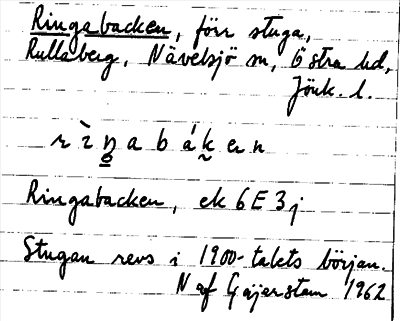 Ringabacken, förr stuga,
Rullaberg, Nävelsjö sn, Östra hd,
Jönk. l.
r ì ŋ a b á k e n
Ringabacken, ek 6E3j
Stugan revs i 1900-talets början.
N af Geijerstam 1962